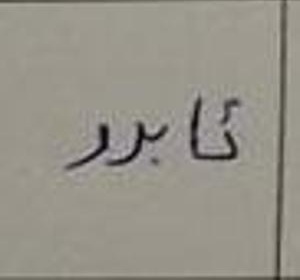 ئابرر